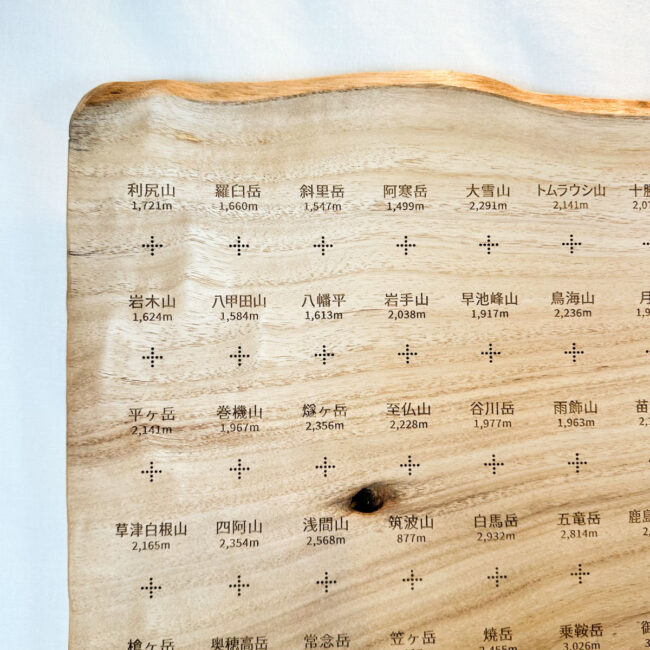 利尻山 羅臼岳 斜里岳 阿寒岳 大雪山 トムラウシ山 十
1,721m 1,660m 1,547m 1,499m 2,291m 2,141m
岩木山 八甲田山 八幡平 岩手山 早池峰山 鳥海山 月
1,624m 1,584m 1,613m 2,038m 1,917m 2,236m
平ヶ岳 巻機山 燧ヶ岳 至仏山 谷川岳 雨飾山 苗
2,141m 1,967m 2,356m 2,228m 1,977m 1,963m
草津白根山 四阿山 浅間山 筑波山 白馬岳 五竜岳 鹿島
2,165m 2,354m 2,568m 877m 2,932m 2,814m
槍ヶ岳 奥穂高岳 常念岳 笠ヶ岳 焼岳 乗鞍岳 御
2,455m 3,026m